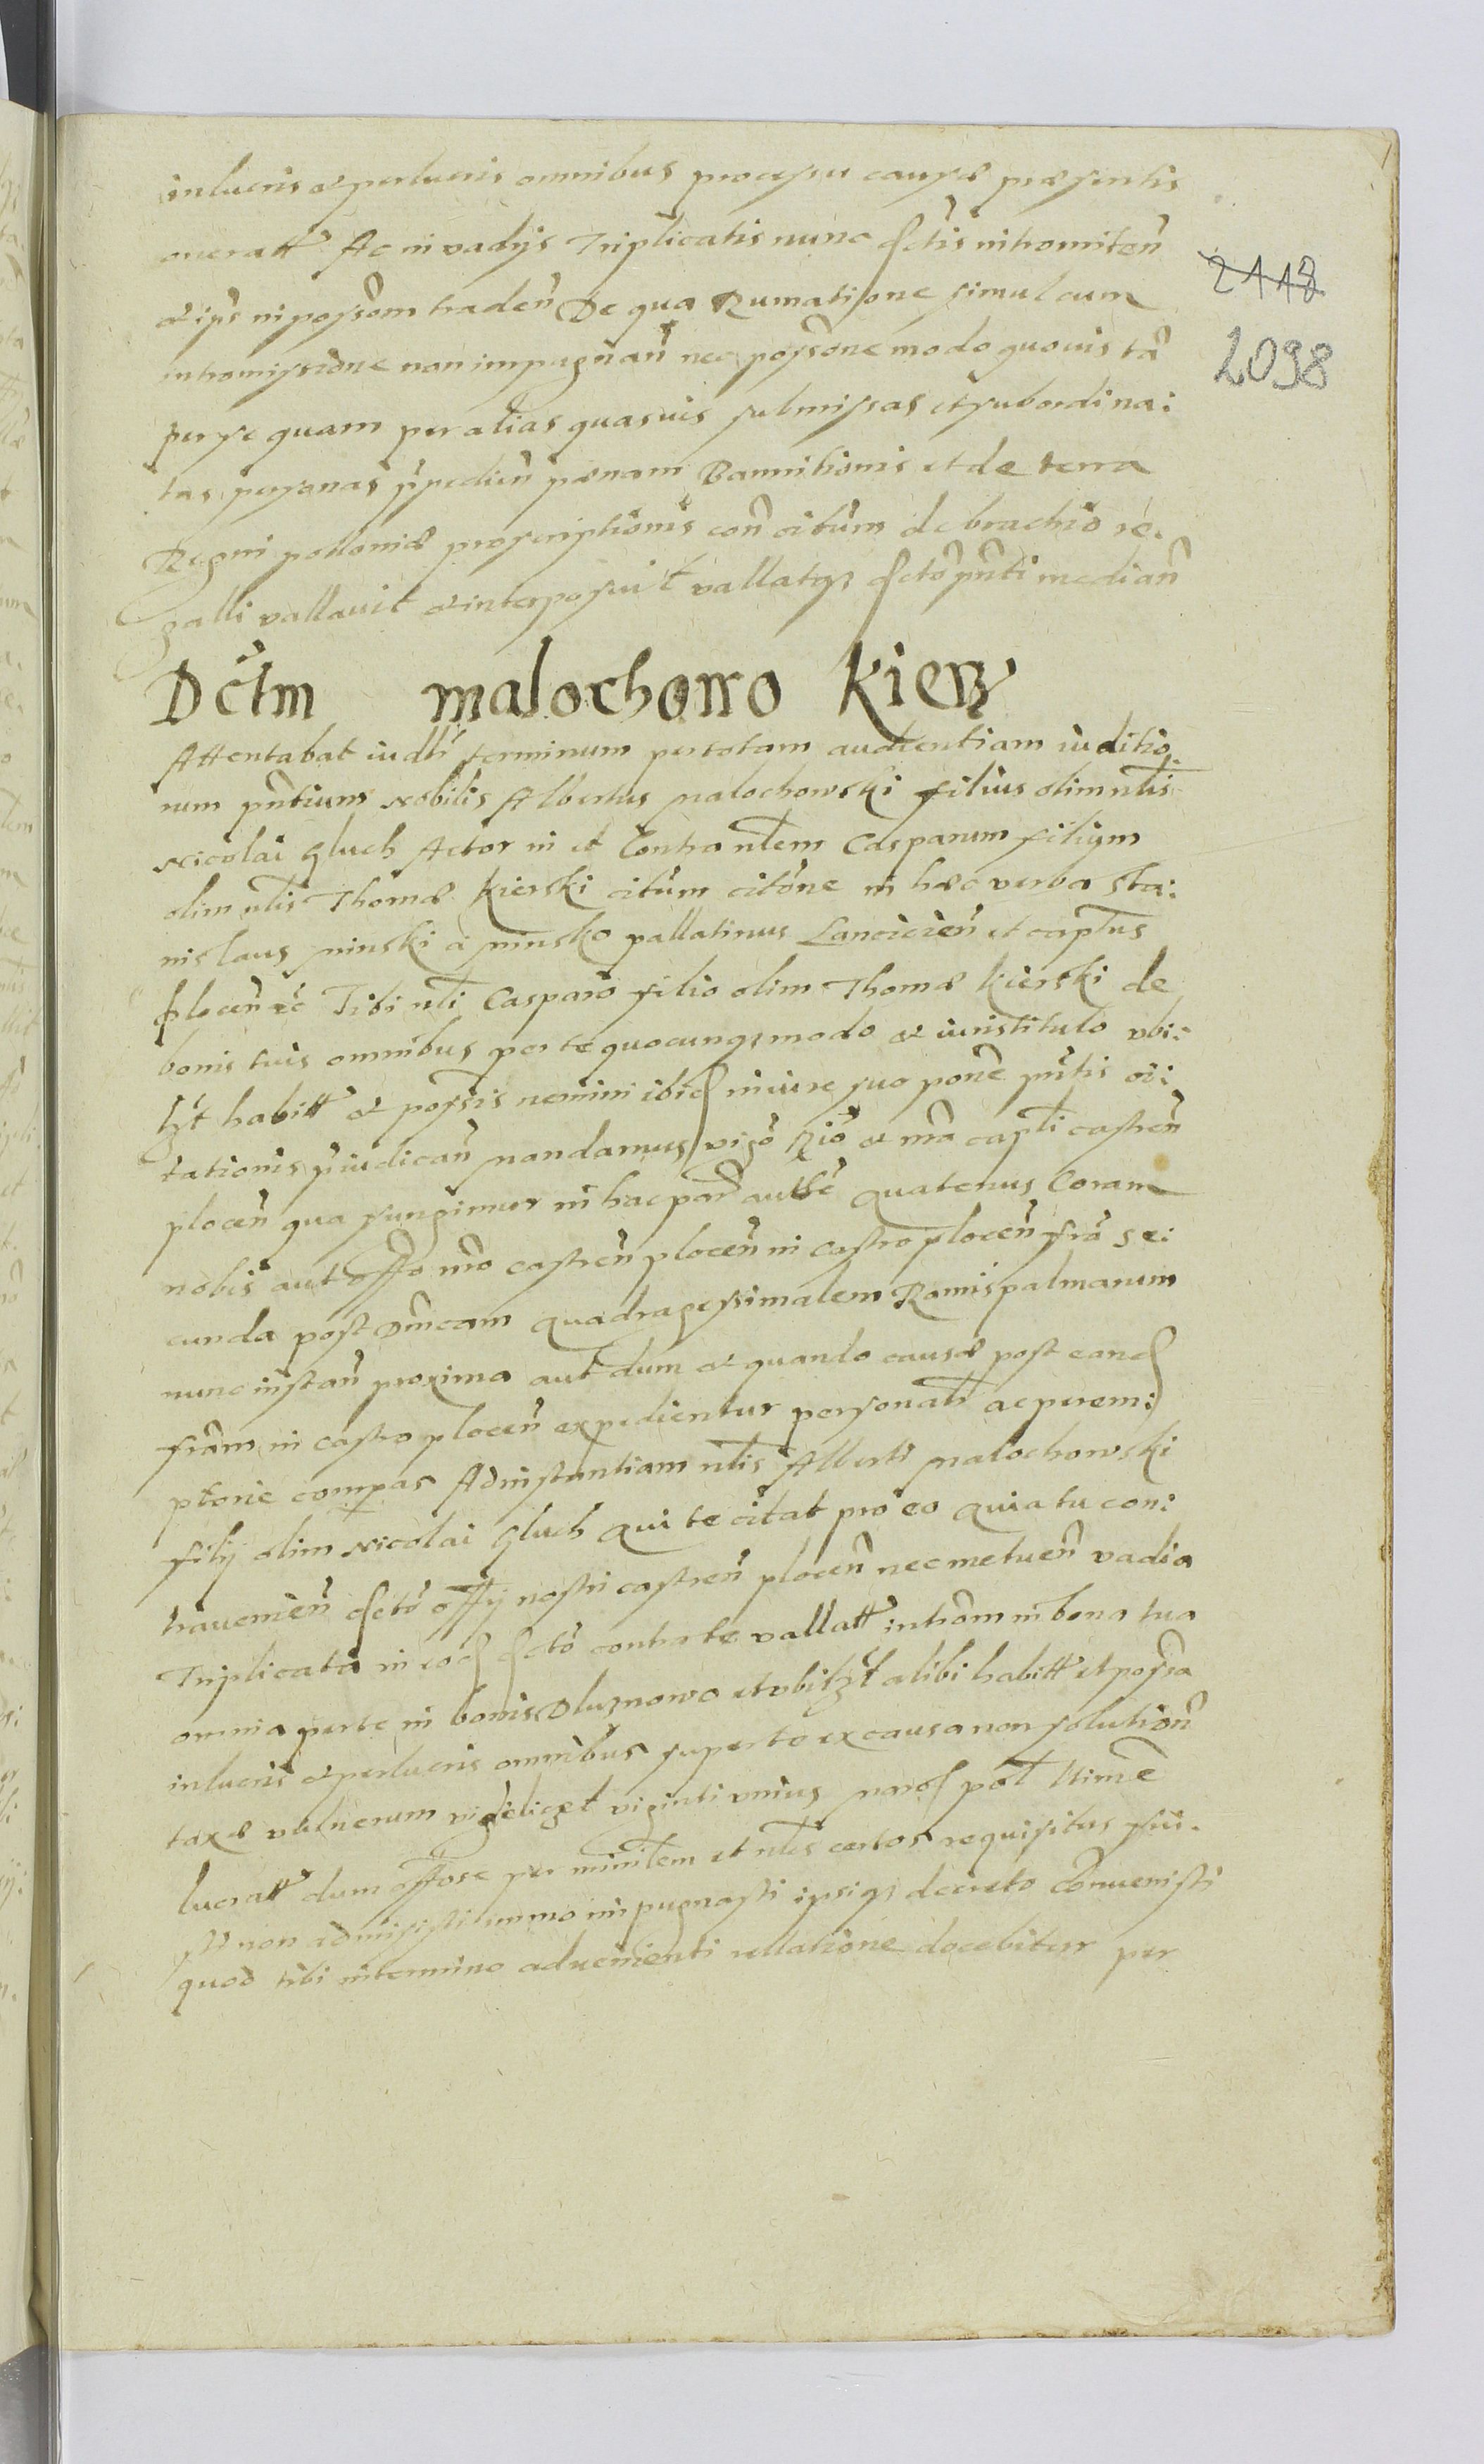 in lucris et perlucris omnibus processu causæ præsentis
oneratt Ac in vadÿs Triplicatis nunc dctis intromiten̄
et ips in possom traden̄ De qua Rumatione simul cum
intromissione non impugnan̄ nec possone modo quovis tā
per se quam per alias quasvis submissas et subordina:
tas personas p̄pedien̄ pænam Bannitionis et de terra
Regni polloniæ proscriptionis con citum de brachio re.
galli vallavit et interposuit vallatqȝ dcto pn̄ti median̄
Dctm malochowo Kierȝ
Attentabat iudlr terminum per totam audientiam iuditio
rum pn̄tium Nobilis Albertus malochowski filius olim nlis
Nicolai Gluch Actor in et Contra nlem Casparum filium
olim nlis Thomæ Kierski citum citōne in hæc verba Sta:
nislaus minski a minsko pallatinus Lancicien̄ et captus
plocen̄ &c Tibi nli Casparo filio olim Thomæ Kierski de
bonis tuis omnibus per te quocunqȝ modo et iuris titulo ubi:
lȝt habitt et possis nemini ibid in iure suo pone pn̄tis ci:
tationis p̄iudican̄ mandamus vigō Rio et nr̄a captli castren̄
plocen̄ qua fungimur in hac par authe quatenus Coram
nobis aut offo nr̄o castren̄ plocen̄ in Castro plocen̄ fr̄a se:
cunda post Dn̄icam quadragessimalem Ramispalmarum
nunc instan̄ proxima aut dum et quando causæ post eand
fr̄am in castro plocen̄ expedientur personatr ac perem:
ptorie compas Ad instantiam nlis Alberti malochowski
filÿ olim Nicolai Gluch qui te citat pro eo quia tu con:
travenien̄ dcto offÿ nostri castren̄ plocen̄ nec metuen̄ vadia
Triplicata in eod dcto contra te vallatt introm in bona tua
omnia per te in bonis Dluznowo et ubilȝt alibi habitt et possa
in lucris et perlucris omnibus super te ex causa non solution̄
taxæ vulnerum videliȝt viginti unius mard pol
lucratt dum offose per minilem et nles certos requisitus fui.
sti non admisisti immo impugnasti ipsiqȝ decreto contravenisti
quod tibi in termino advenienti rellatione docebitur per
2118
2098